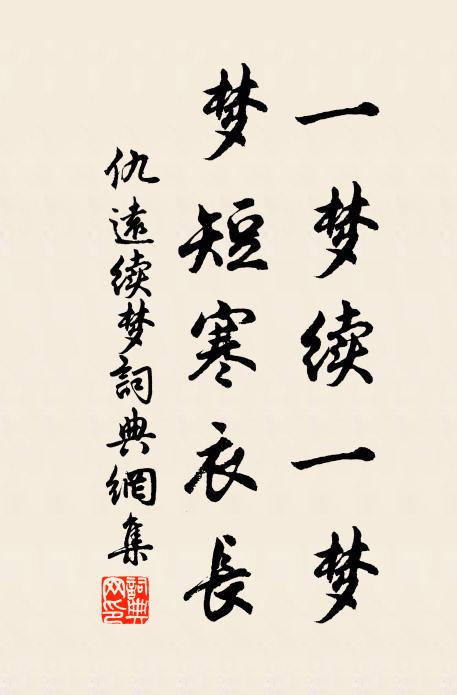 一梦续一梦
梦短寒衣長
仇遠续梦詞典網集
詞典网印